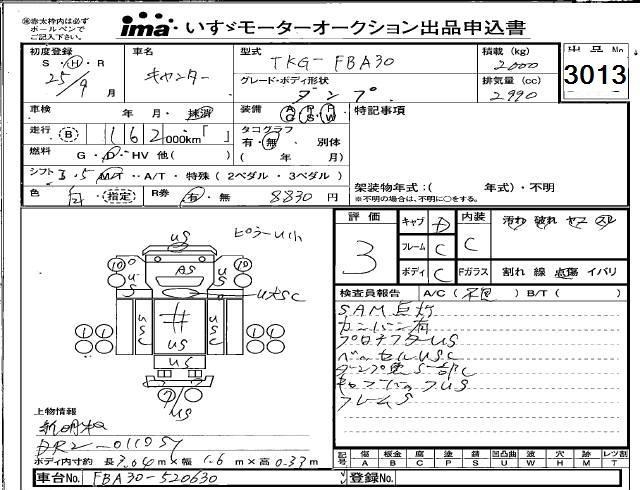 ㊟赤太枠内は必ず
ボールペンで
ご記入下さい。
ima いすゞモーターオークション出品申込書
初度登録
S・H・R
25/9 月
車名
キャンター
型式
TKG-FBA30
グレード・ボディ形状
ダンプ
積載 (kg)
2000
排気量 (cc)
2990
出品No.
3013
車検 年・月・抹消
装備 AG PS PW
特記事項
走行 B 162 000km「 」
タコグラフ
有・無 別体
( 年 月)
燃料 G・D・HV 他( )
シフト 5 M/T・・A/T・・特殊(2ペダル・3ペダル)
色 白・指定 R券 有・無 8830 円
架装物年式:( 年式)・不明
※不明の場合は、不明に○をする。
評価
3
キャブ D
フレーム C
ボディ C
内装
C
汚れ 破れ ヤケ スレ
Fガラス
割れ 線 点傷 イバリ
検査員報告 A/C( ) B/T( )
SAM点灯
カンバン有
US
AS
US
US
10
10
1
1
1
1
フレームS
上物情報
新明和
DR2-011957
ボディ内寸約 長3.04m×幅1.6m×高0.33m
記号
傷 A
板金 B
腐 C
塗 P
錆 S
凹凸曲 U
波 W
穴 H
跡 M
レツ割 T
車台No. FBA30-520630
登録No.